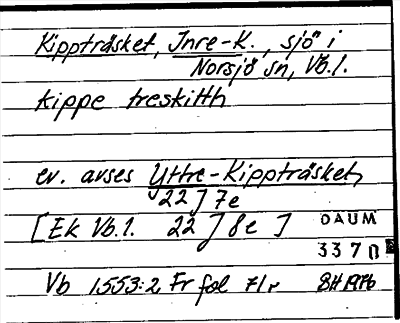 Kippträsket, Inre-K., sjö i
Norsjö sn, Vb.l.
kippe treskitth
ev. avses Yttre-Kippträsket,
22 J 7e
[Ek Vb.l. 22 J 8e ] DAUM
3370
Vb 1553:2 Fr fol 71r BH 1976